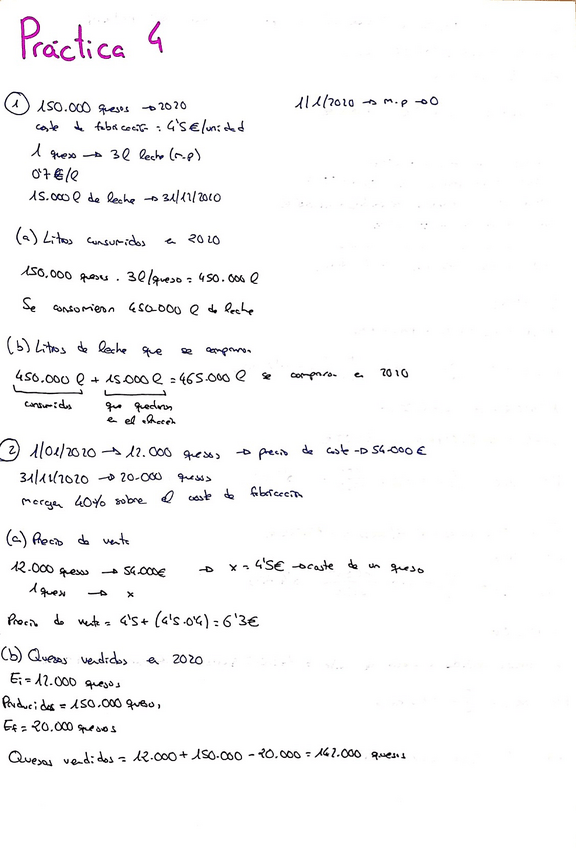 Práctica 4
① 150.000 quesos → 2020 1/1/2020 → m.p → 0
coste de fabricación = 4'5€/unidad
1 queso → 3l leche (m.p)
0'7 €/l
15.000 l de leche → 31/12/2020
(a) Litros consumidos en 2020
150.000 quesos . 3l/queso = 450.000 l
Se consumieron 450.000 l de leche
(b) Litros de leche que se compraron
450.000 l + 15.000 l = 465.000 l se compraron en 2020
consumidos que quedaron
en el almacén
② 1/01/2020 → 12.000 quesos → precio de coste → 54.000 €
31/12/2020 → 20.000 quesos
margen 40% sobre el coste de fabricación
(a) Precio de venta
12.000 quesos → 54.000€ → x = 4'5€ → coste de un queso
1 queso → x
Precio de venta = 4'5 + (4'5 . 0'4) = 6'3€
(b) Quesos vendidos en 2020
Ei = 12.000 quesos
Producidos = 150.000 quesos
Ef = 20.000 quesos
Quesos vendidos = 12.000 + 150.000 - 20.000 = 142.000 quesos